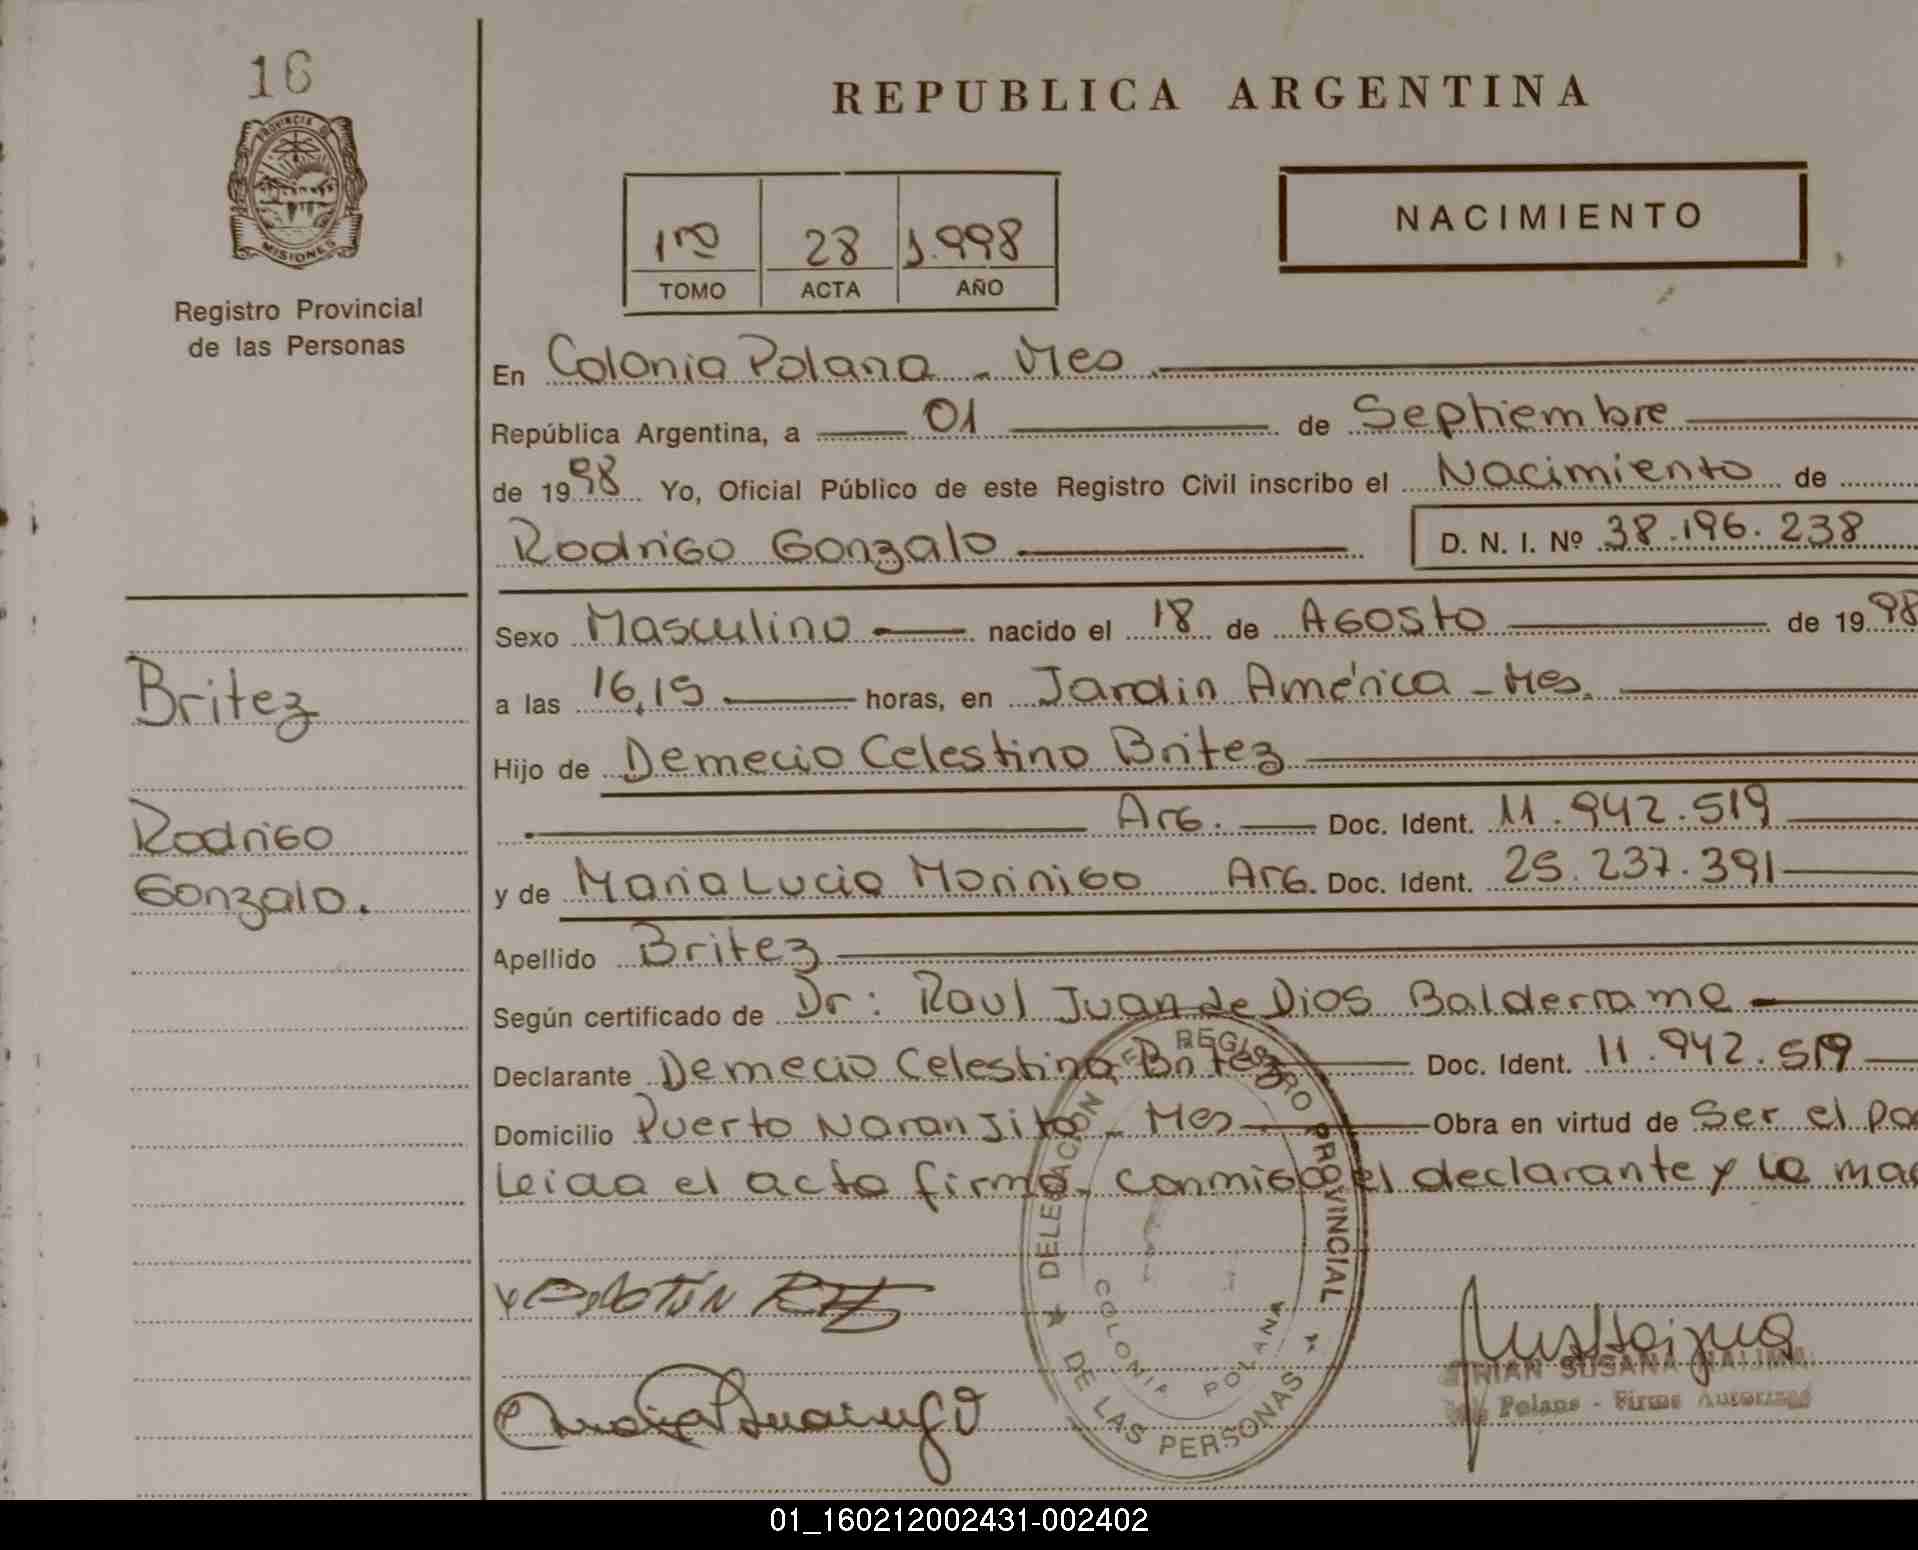 16
PROVINCIA DE
MISIONES
Registro Provincial
de las Personas
REPUBLICA ARGENTINA
1ro 28 1.998
TOMO ACTA AÑO
NACIMIENTO
En Colonia Polana - Mes
República Argentina, a 01 de Septiembre
de 1998 Yo, Oficial Público de este Registro Civil inscribo el Nacimiento de
Rodrigo Gonzalo D. N. I. Nº 38.196.238
Sexo Masculino nacido el 18 de Agosto de 1998
a las 16,15 horas, en Jardin América - Mes.
Hijo de Demecio Celestino Britez
Arg. Doc. Ident. 11.942.519
y de Maria Lucia Morinigo Arg. Doc. Ident. 25.237.391
Apellido Britez
Según certificado de Dr: Raul Juan de Dios Balderrama
Declarante Demecio Celestino Britez Doc. Ident. 11.942.519
Domicilio Puerto Naranjito - Mes Obra en virtud de Ser el pa
Leida el acta firma conmigo el declarante y la mad
Britez
Rodrigo
Gonzalo.
DELEGACION REGISTRO PROVINCIAL
DE LAS PERSONAS
COLONIA POLANA
SUSANA
Polana - Firma Autorizad
01_160212002431-002402